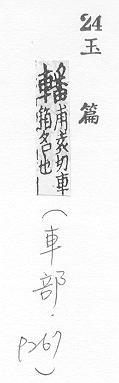 24
玉篇
轓甫袁切車
箱名也
(車部.
P267)